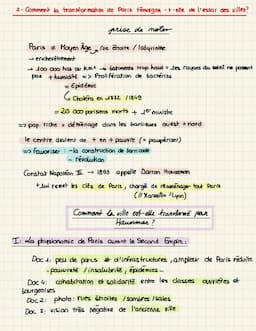 2- Comment la transformation de Paris témoigne-t-elle de l'essor des villes?
prise de notes
Paris = Moyen Âge, rue étroite / labyrinthe
→ enchevêtrement
→ 100 000 hab au km² → bâtiments trop haut = les rayons du soleil ne passent
pas + humidité => Prolifération de bactéries
= Épidémie
↳ Choléra en 1832 / 1849
= 20 000 parisiens morts + 1er ministre
=> pop riche = déménage dans les banlieues ouest + nord
le centre devient de + en + pauvre (= paupériser)
=> favoriser : - la construction de barricade
- révolution
Constat Napoléon III → 1853 appelle Baron Haussman
+ lui remet les clés de Paris, chargé de réaménager tout Paris
(+ Marseille / Lyon)
Comment la ville est-elle transformé par
Haussman ?
I- La physionomie de Paris avant le Second Empire :
Doc 1: peu de parcs et d'infrastructures, ampleur de Paris réduite
- pauvreté / insalubrité, épidémies...
Doc 4: cohabitation et solidarité entre les classes ouvrières et
bourgeoises
Doc 2: photo : rues étroites / sombres / sales
Doc 3: vision très négative de l'ancienne ville